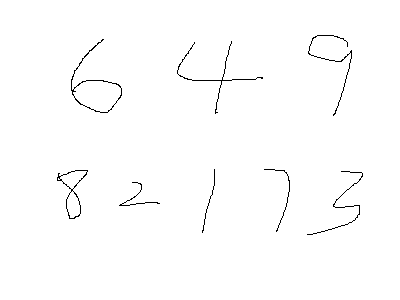 6 4 9
8 2 1 7 3